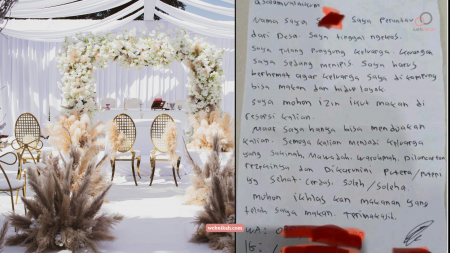 Assalamualaikum.
Nama saya Saya Perantau
dari Desa. Saya tinggal ngekos.
Saya Tulang Punggung keluarga. keuangan
saya sedang menipis. Saya harus
berhemat agar keluarga saya di kampung
bisa makan dan hidup layak.
Saya mohon izin ikut makan di
resepsi kalian.
Maaf saya hanya bisa mendoakan
kalian. Semoga kalian menjadi keluarga
yang Sakinah, Mawadah, Warohmah. Dilancarkan
rezekinya dan Dikaruniai Putera/puteri
yg sehat, cerdas, soleh/soleha.
mohon ikhlas kan makanan yang
telah saya makan. Terimakasih.
WA:
IG: